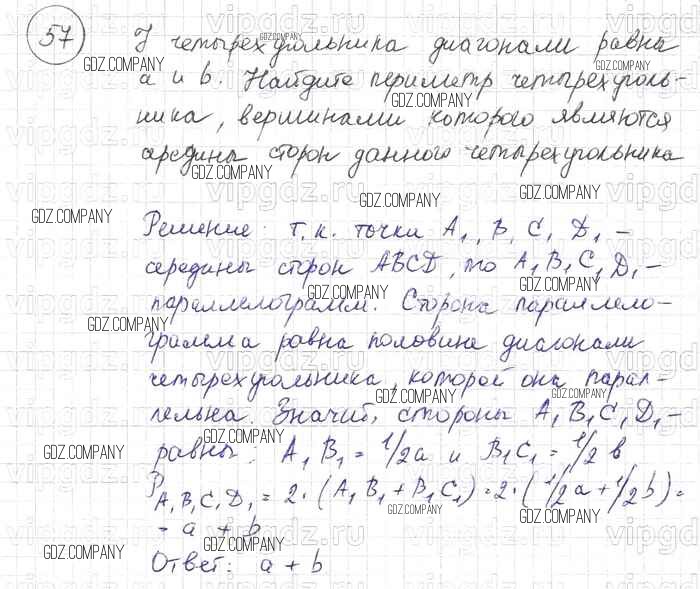 57 У четырехугольника диагонали равны
a и b. Найдите периметр четырехуголь-
ника, вершинами которого являются
середины сторон данного четырехугольника
Решение: т.к. точки A₁, B₁ C₁ D₁ -
середины сторон ABCD, то A₁B₁C₁D₁ -
параллелограмм. Сторона параллело-
грамма равна половине диагонали
четырехугольника, которой она парал-
лельна. Значит, стороны A₁B₁C₁D₁ -
равны: A₁B₁ = 1/2a и B₁C₁ = 1/2 b
P A₁B₁C₁D₁ = 2·(A₁B₁+B₁C₁)=2·(1/2a+1/2b)=
= a + b
Ответ: a + b
GDZ.COMPANY
vipgdz.ru